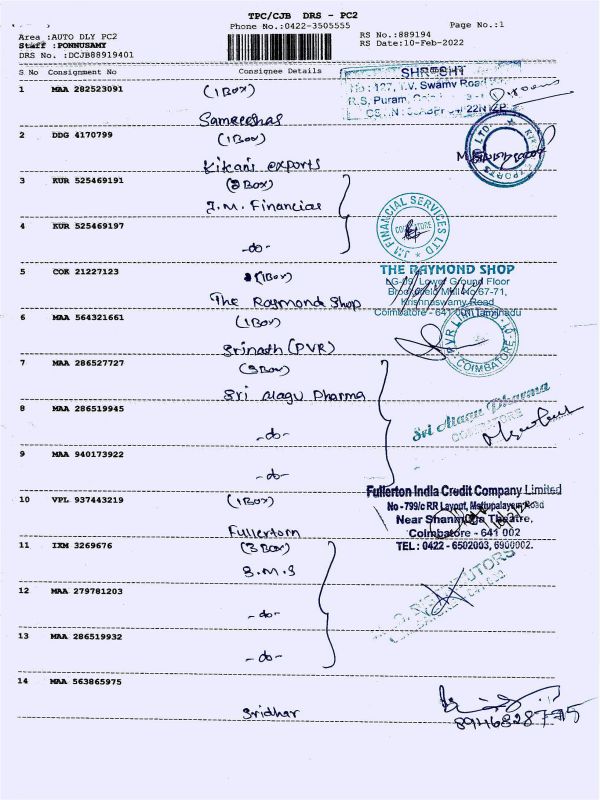 TPC/CJB DRS - PC2
Phone No.:0422-3505555
Page No.:1
Area :AUTO DLY PC2
Staff :PONNUSAMY
DRS No. :DCJB88919401
RS No.:889194
RS Date:10-Feb-2022
S No Consignment No Consignee Details
1 MAA 282523091 (1 Box)
SHRESHT
No : 127, T.V. Swamy Road
R.S. Puram,
Sameeshas
2 DDG 4170799 (1 Box)
Kikani exports
3 KUR 525469191 (2 Box)
J.M. Financial
JM FINANCIAL SERVICES LTD
COIMBATORE
4 KUR 525469197
-do-
5 COK 21227123 (1 Box)
The Raymond Shop
THE RAYMOND SHOP
LG-09, Lower Ground Floor
Brookefield Mall No.67-71,
Krishnaswamy Road
Coimbatore - 641 001 Tamilnadu
6 MAA 564321661 (1 Box)
Srinath (PVR)
PVR LIMITED
COIMBATORE
7 MAA 286527727 (3 Box)
Sri Alagu Pharma
Sri Alagu Pharma
COIMBATORE
8 MAA 286519945
-do-
9 MAA 940173922
-do-
10 VPL 937443219 (1 Box)
Fullertorn
Fullerton India Credit Company Limited
No - 799/c RR Layout, Mettupalayam Road
Near Shanmuga Theatre,
Coimbatore - 641 002
TEL : 0422 - 6502003, 6900002.
11 IXM 3269676 (3 Box)
S.M.S
12 MAA 279781203
-do-
13 MAA 286519932
-do-
14 MAA 563865975
Sridhar